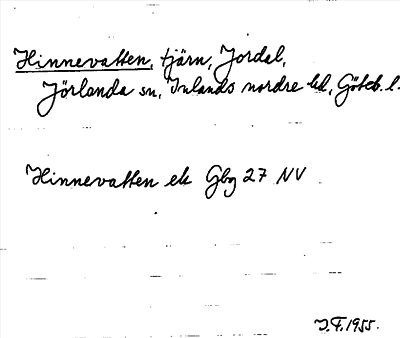 Hinnevatten, tjärn, Jordal,
Jörlanda sn, Inlands nordre hd, Göteb. l.
Hinnevatten ek Gbg 27 NV
J.F. 1955.